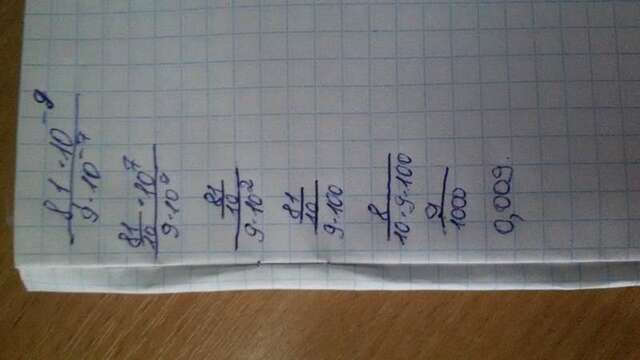 8,1 · 10⁻⁹ / 9 · 10⁻⁷
81/10 · 10⁷ / 9 · 10⁹
81/10 / 9 · 10²
81/10 / 9 · 100
8 / 10 · 9 · 100
9 / 1000
0,009.